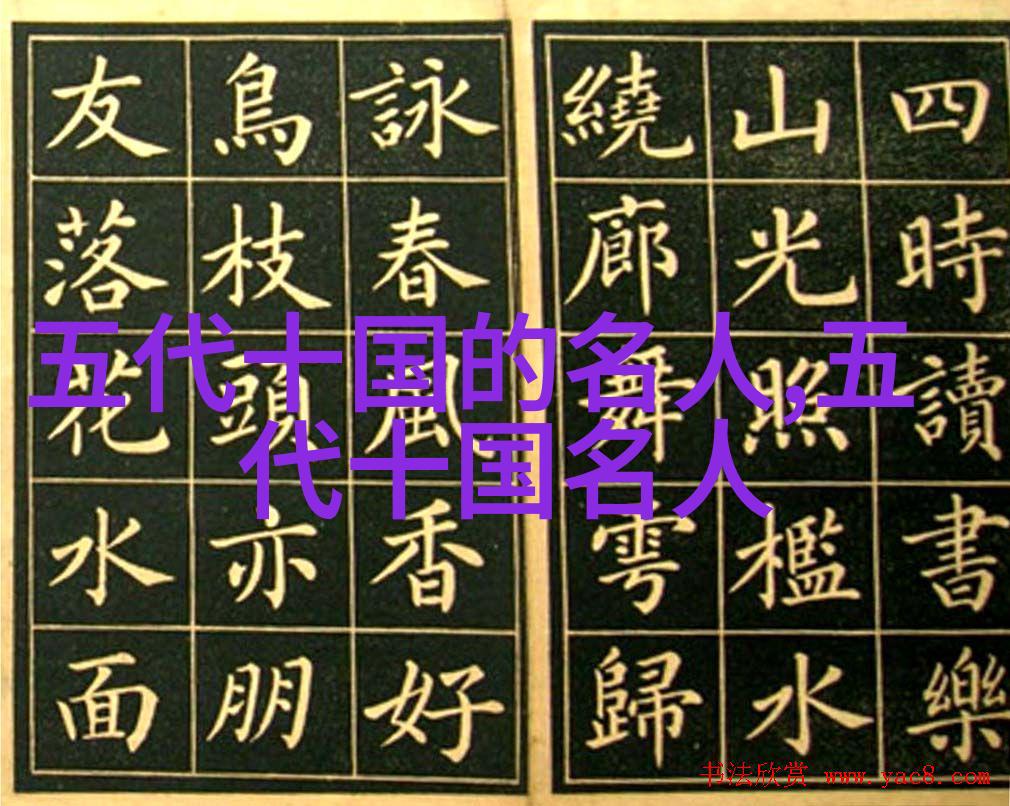 四時讀書樂
山光照檻水
繞廊舞雩歸
詠春風香好
鳥枝頭亦朋
友落花水面
五代十国的名人,五
代十国名人
书法欣赏 www.yac8.com